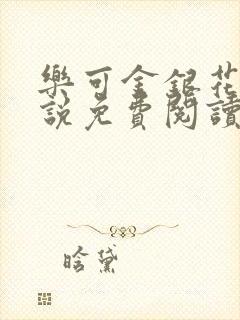 樂可金銀花
說免費閱讀
晗黛